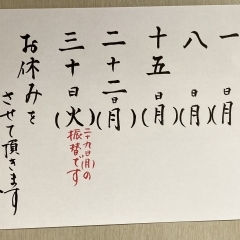 一日(月)
八日(月)
十五日(月)
二十二日(月)
三十日(火)
二十九日(月)の
振替です
お休みを
させて頂きます